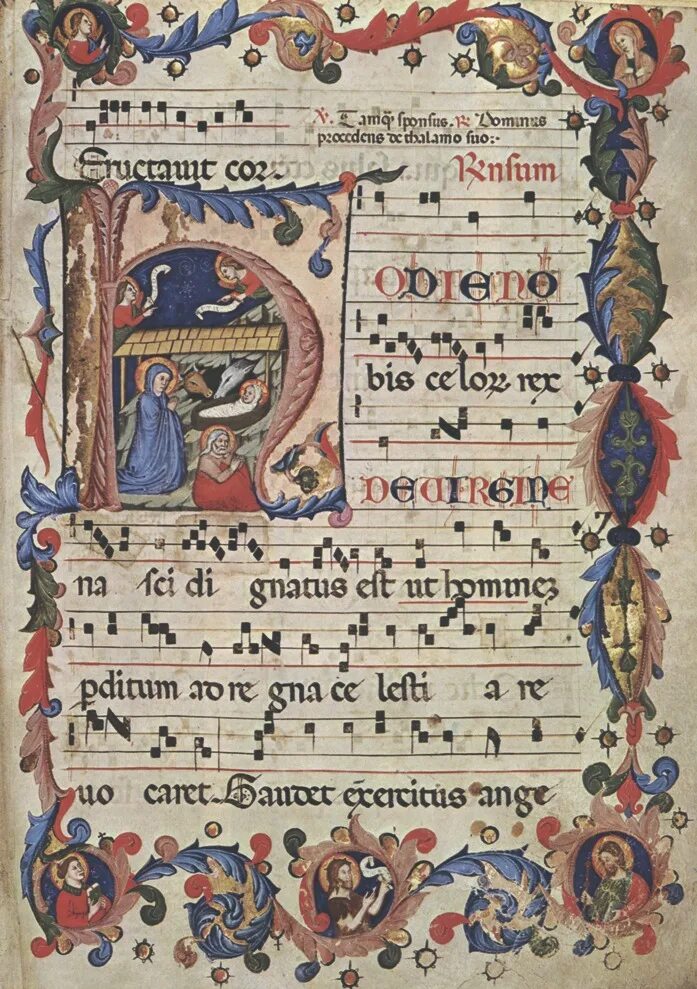 Eructauit cor.
℣. Tamq̄ sponsus. ℟. Dominus
procedens de thalamo suo:
Rn̄sum
HODIE NO
bis celoꝝ rex
DE UIRGINE
na sci di gnatus est ut hominez
ꝑditum ad re gna ce lesti a re
uo caret. Gaudet exercitus ange